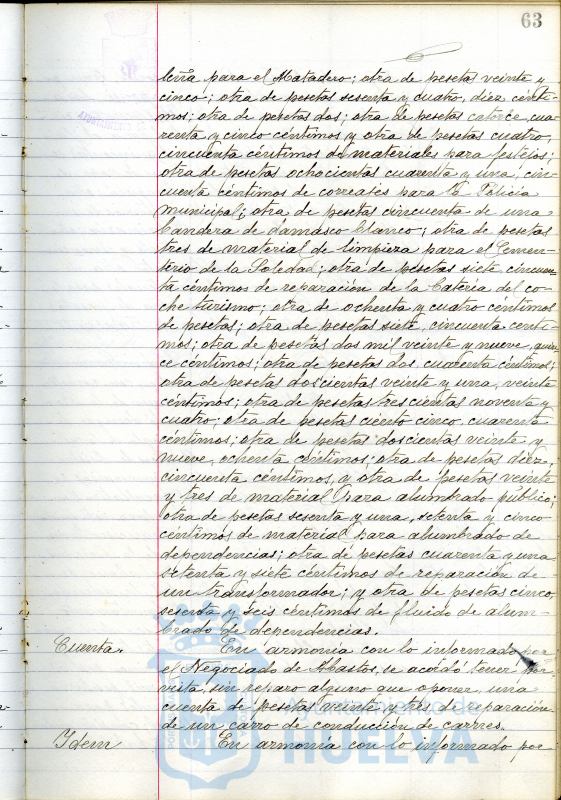 63
para el Matadero; otra de pesetas veinte y
cinco; otra de pesetas sesenta y cuatro, diez cénti-
mos; otra de pesetas dos; otra de pesetas catorce, cua-
renta y cinco céntimos y otra de pesetas cuatro,
cincuenta céntimos de materiales para festejos;
otra de pesetas ochocientas cuarenta y una, cin-
cuenta céntimos de correajes para la Policía
municipal; otra de pesetas cincuenta de una
bandera de damasco blanco; otra de pesetas
tres de material de limpieza para el Cemen-
terio de la Soledad; otra de pesetas siete cincuen-
ta céntimos de reparación de la batería del co-
che turismo; otra de ochenta y cuatro céntimos
de pesetas; otra de pesetas siete, cincuenta cénti-
mos; otra de pesetas dos mil veinte y nueve, quin-
ce céntimos; otra de pesetas dos cuarenta céntimos;
otra de pesetas doscientas veinte y una, veinte
céntimos; otra de pesetas trescientas noventa y
cuatro; otra de pesetas ciento cinco, cuarenta
céntimos; otra de pesetas doscientas veinte y
nueve, ochenta céntimos; otra de pesetas diez,
cincuenta céntimos, y otra de pesetas veinte
y tres de material para alumbrado público;
otra de pesetas sesenta y una, setenta y cinco
céntimos de material para alumbrado de
dependencias; otra de pesetas cuarenta y una
setenta y siete céntimos de reparación de
un transformador; y otra de pesetas cinco,
sesenta y seis céntimos de fluido de alum-
brado de dependencias.
Cuenta. En armonía con lo informado por
el Negociado de Abastos, se acordó tener por
vista, sin reparo alguno que oponer, una
cuenta de pesetas veinte y tres de reparación
de un carro de conducción de carnes.
Idem En armonía con lo informado por
Ayuntamiento de
HUELVA